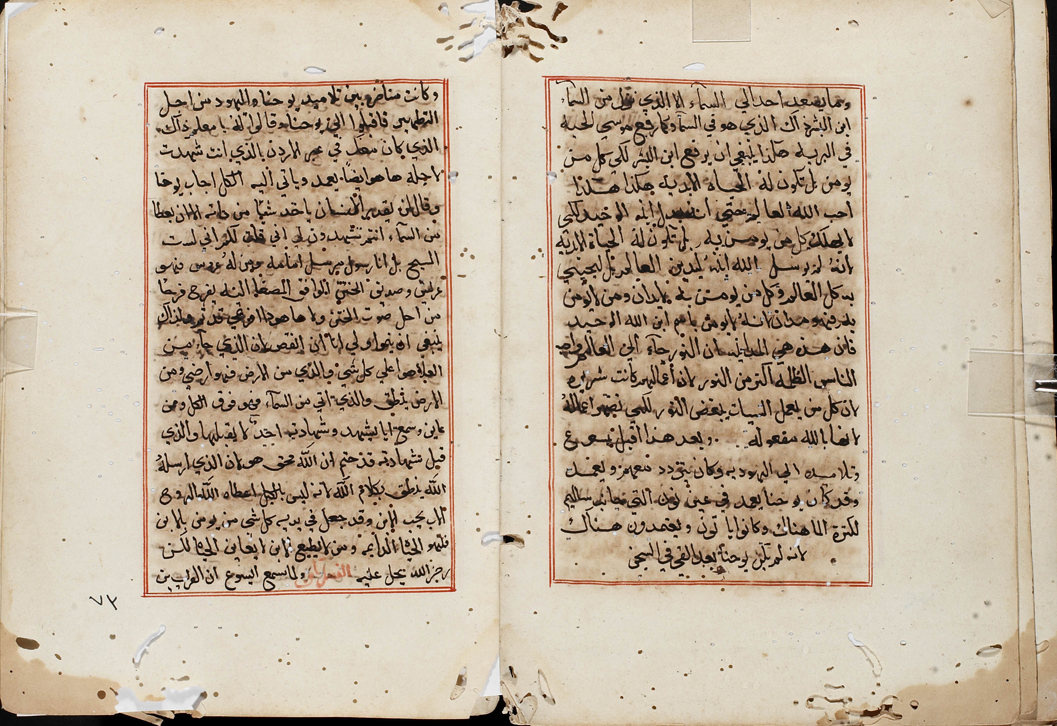 وما يصعد احد الي السماء الا الذي نزل من السماء
ابن البشر ذاك الذي هو في السما وكما رفع موسي الحية
في البرية هكذا ينبغي ان يرفع ابن البشر لكي كل من
يومن بل تكون له الحياة الابدية هكذا هكذا
احب الله العالم حتي ابنه الوحيد لكي
لا يهلك كل من يومن به بل تكون له الحياة الابدية
لانه لم يرسل الله ابنه ليدين العالم بل ليحيي
به كل العالم وكل من يومن به لا يدان ومن لا يومن
به فهو مدان لانه لا يومن باسم ابن الله الوحيد
فان هذه هي ان النور جاء الي العالم
الناس الظلمة اكثر من النور لان اعمالهم كانت شريره
لان كل من يعمل السيات يبغض النور اعماله
انها بالله مفعوله وبعد هذا اقبل يسوع
وتلاميده الي اليهوديه وكان يتردد معهم ويعمد
وقد كان يوحنا يعمد في عين نون التي
لكثرة الما هناك وكانوا ياتون ويعتمدون هناك
لانه لم يكن يوحنا بعد القي في السجن
وكانت مناظره بين تلاميد يوحنا واليهود من اجل
التطهير فاقبلوا الي يوحنا وقالوا له يا معلم ذاك
الذي كان معك في عبر الاردن الذي انت شهدت
لاجله ها هو ايضا يعمد وياتي اليه الكل اجاب يوحنا
وقال لن يقدر الانسان ياخد شيا من داته الا ان يعطا
من السماء انتم تشهدون لي اني قلت لكم اني لست
المسيح بل انا رسول مرسل امامه ومن له عروس فهو
عريس وصديق الختن الواقف المصغا اليه يفرح فرحا
من اجل صوت الختن وها هودا فرحي قد تم هداك
ينبغي ان ينموا ولي انا ان انقص لان الذي جاء من
العلا هو اعلي كل شي والذي من الارض فهو ارضي ومن
الارض ينطق والذي اتي من السماء فهو فوق الكل ومن
عاين وسمع ايا يشهد وشهادته احد لا يقبلها والذي
قبل شهادته قد ختم ان الله محق هو لان الذي ارسله
الله ينطق بكلام الله لانه ليس بالكيل اعطاه الله الروح
الاب يحب الابن وقد جعل في يديه كل شي من يومن بالابن
فله الحياة الدايمه ومن لا يطيع الابن لا يعاين الحياة لكن
رجز الله يحل عليه ولما سمع اليسوع ان الفريسين
٧٣